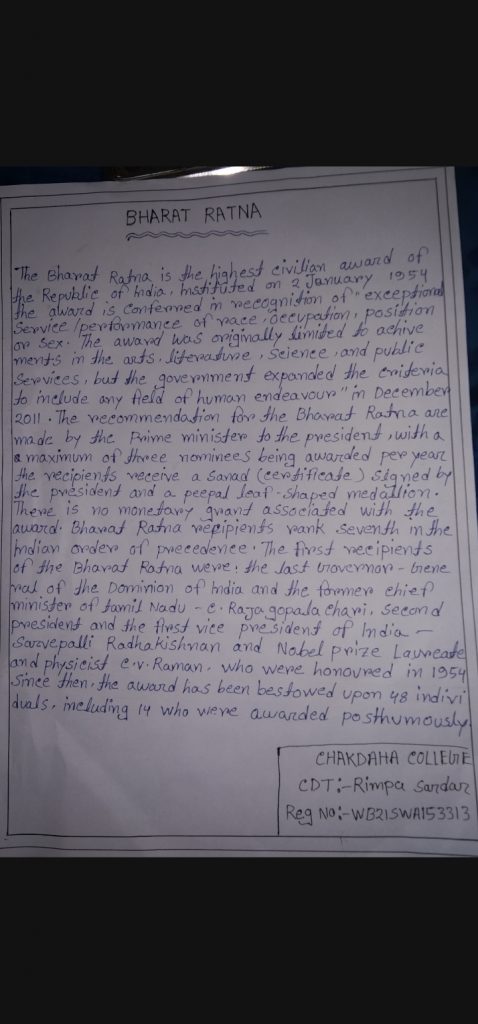 BHARAT RATNA
The Bharat Ratna is the highest civilian award of
the Republic of India, Instituted on 2 January 1954
the award is conferred in recognition of "exceptional
Service/performance of race, occupation, position
or sex. The award was originally limited to achive
ments in the arts, literature, science, and public
Services, but the government expanded the criteria
to include any field of human endeavour" in December
2011. The recommendation for the Bharat Ratna are
made by the Prime minister to the president, with a
a maximum of three nominees being awarded per year
the recipients receive a Sanad (certificate) signed by
the president and a peepal leaf-shaped medallion.
There is no monetary grant associated with the
award. Bharat Ratna recipients rank seventh in the
Indian order of precedence. The first recipients
of the Bharat Ratna were; the last Governor-Gene
ral of the Dominion of India and the former chief
minister of tamil Nadu - C. Rajagopalachari, second
president and the first vice president of India -
Sarvepalli Radhakishnan and Nobel prize Laureate
and physicist C.V. Raman, who were honoured in 1954
Since then, the award has been bestowed upon 48 indivi
duals, including 14 who were awarded posthumously.
CHAKDAHA COLLEGE
CDT:-Rimpa Sardar
Reg No:-WB21SWA153313